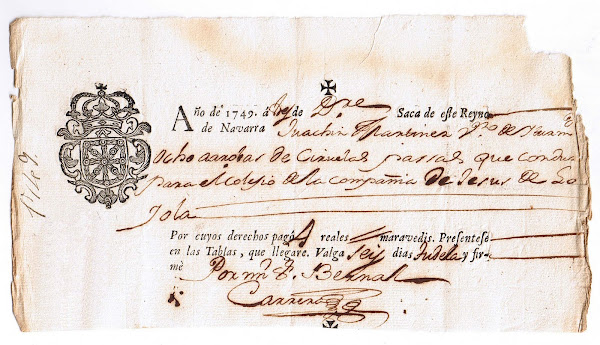 Año de 1749. á de Dre Saca de este Reyno
de Navarra Juachin Martinez Vo de
Ocho arrobas de Ciruelas passas que
para el Colejio de la Compañia de Jesus de Lo
Jola
Por cuyos derechos pagó 4 reales maravedis. Presentese
en las Tablas, que llegare. Valga seis dias Tudela y fir-
mè Por mi Bernal
Carrera
1749